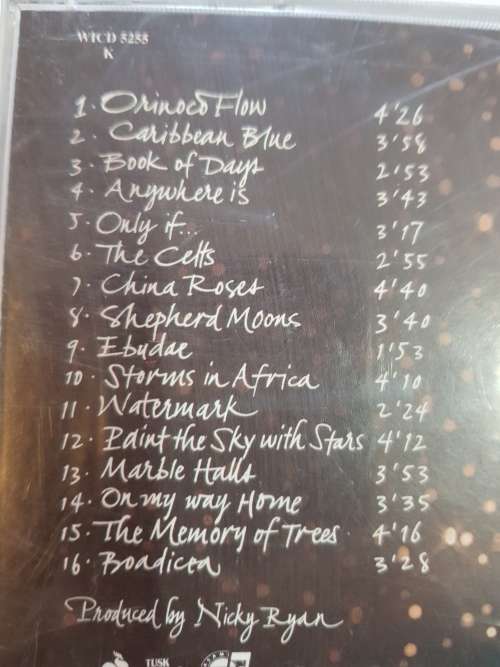 WICD 5255
K
1. Orinoco Flow 4'26
2. Caribbean Blue 3'58
3. Book of Days 2'53
4. Anywhere is 3'43
5. Only if... 3'17
6. The Celts 2'55
7. China Roses 4'40
8. Shepherd Moons 3'40
9. Ebudae 1'53
10. Storms in Africa 4'10
11. Watermark 2'24
12. Paint the Sky with Stars 4'12
13. Marble Halls 3'53
14. On my way Home 3'35
15. The Memory of Trees 4'16
16. Boadicea 3'28
Produced by Nicky Ryan
TUSK